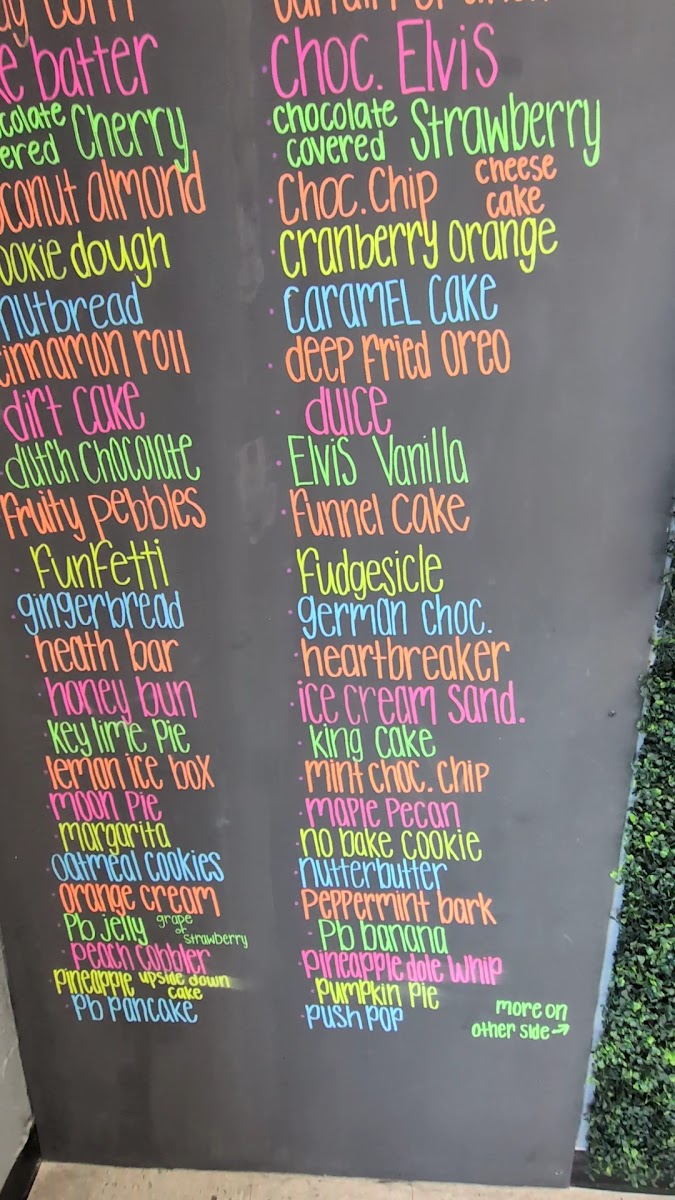 ke batter
colate
ered Cherry
oconut almond
ookie dough
nutbread
innamon roll
dirt cake
dutch chocolate
Fruity Pebbles
· Funfetti
· gingerbread
· heath bar
· honey bun
· key lime Pie
· lemon ice box
· moon Pie
· margarita
· oatmeal cookies
· orange cream
· Pb jelly grape or strawberry
· Peach cobbler
· Pineapple upside down cake
· Pb Pancake
· Choc. Elvis
· chocolate covered Strawberry
· Choc. Chip cheese cake
· Cranberry orange
· Caramel Cake
· deep Fried Oreo
· dulce
· Elvis Vanilla
· Funnel cake
· Fudgesicle
· german choc.
· heartbreaker
· ice cream sand.
· king cake
· mint choc. chip
· maple Pecan
· no bake cookie
· nutterbutter
· Peppermint bark
· Pb banana
· Pineapple dole whip
· Pumpkin Pie
· Push Pop
more on
other side →